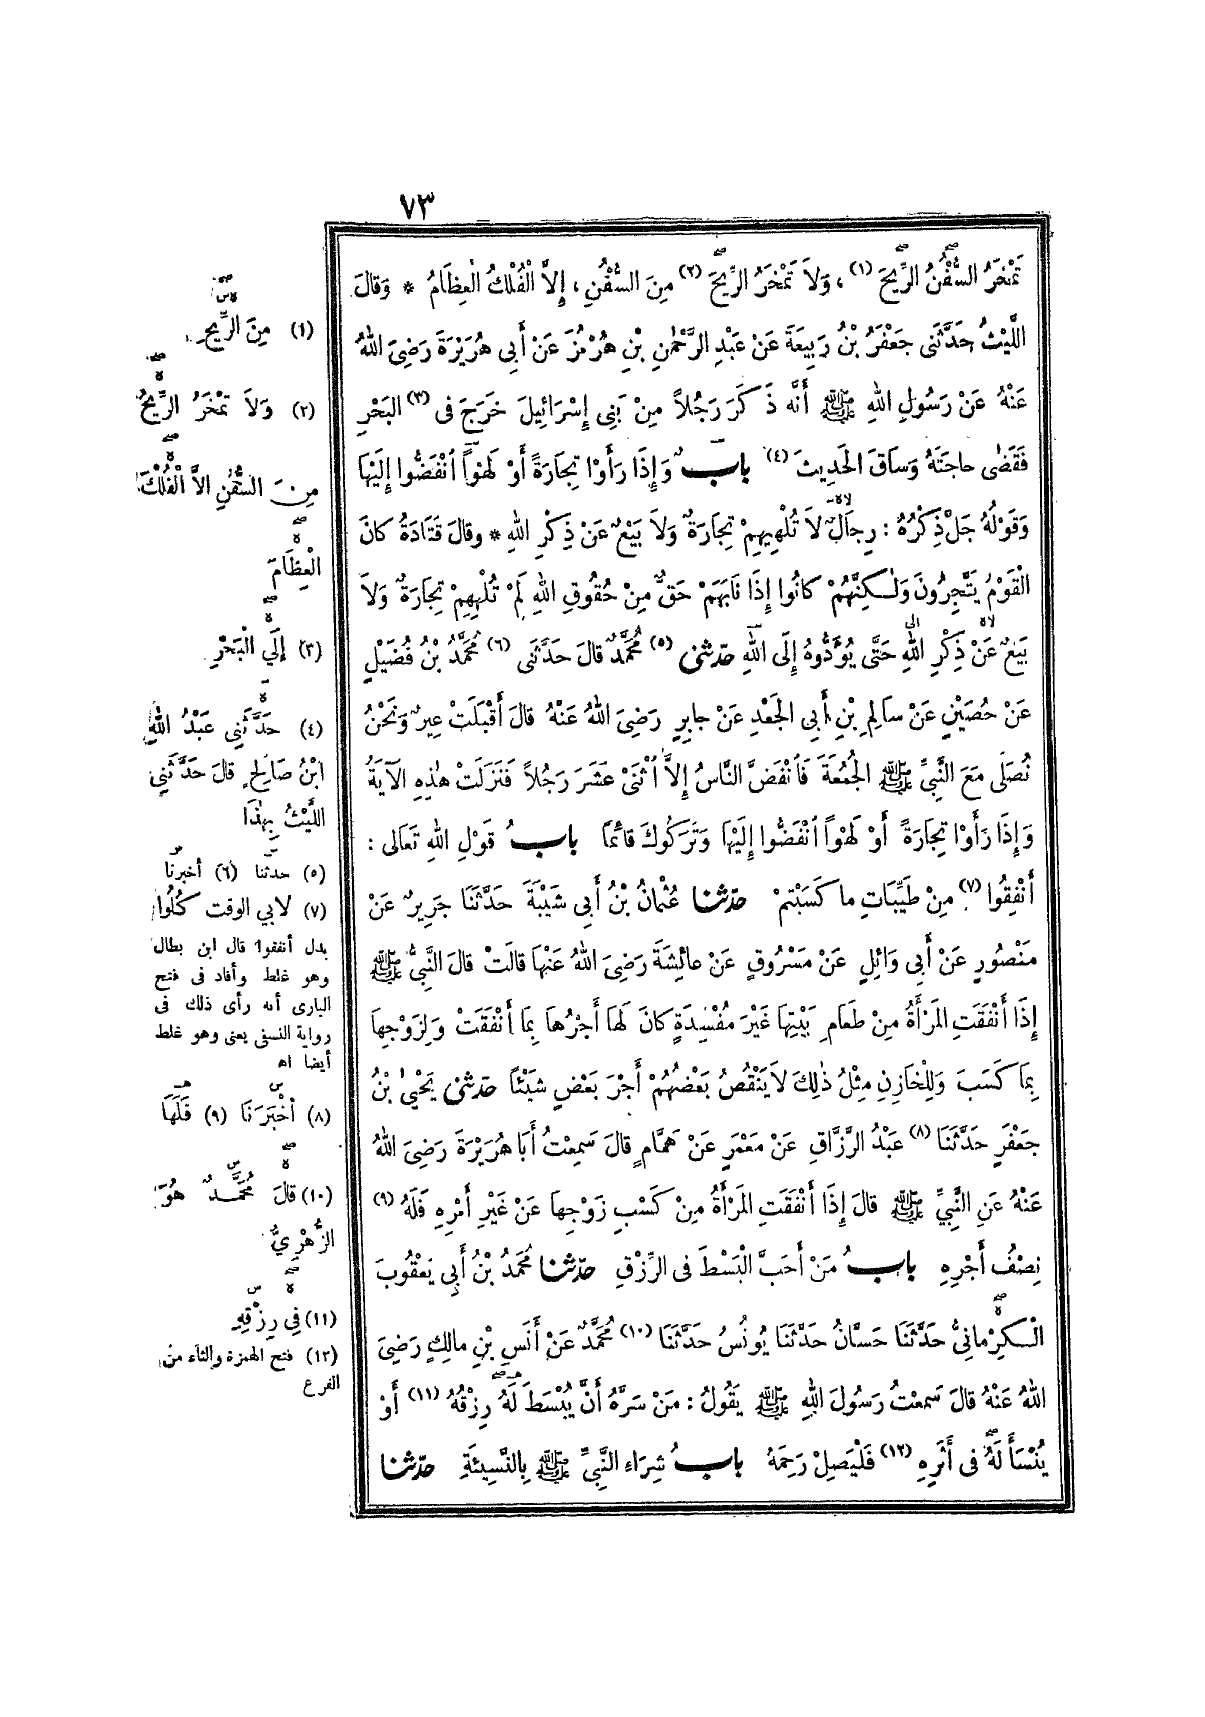 ٧٣
تَمْخَرُ السُّفُنُ الرِّيحَ (١) ، وَلاَ تَمْخَرُ الرِّيحَ (٢) مِنَ السُّفُنِ ، إِلاَّ الْفُلْكُ الْعِظَامُ * وَقَالَ
اللَّيْثُ حَدَّثَنِى جَعْفَرُ بْنُ رَبِيعَةَ عَنْ عَبْدِ الرَّحْمٰنِ بْنِ هُرْمُزَ عَنْ أَبِى هُرَيْرَةَ رَضِىَ اللهُ
عَنْهُ عَنْ رَسُولِ اللهِ ﷺ أَنَّهُ ذَكَرَ رَجُلاً مِنْ بَنِى إِسْرَائِيلَ خَرَجَ فِى (٣) الْبَحْرِ
فَقَضٰى حاجَتَهُ وَسَاقَ الحَدِيثَ (٤) بابٌ وَإِذَا رَأَوْا تِجَارَةً أَوْ لَهْوًا انْفَضُّوا إِلَيْهَا
وَقَوْلُهُ جَلَّ ذِكْرُهُ : رِجالٌ لاَ تُلْهِيهِمْ تِجَارَةٌ وَلاَ بَيْعٌ عَنْ ذِكْرِ اللهِ * وقالَ قَتَادَةُ كانَ
الْقَوْمُ يَتَّجِرُونَ وَلٰكِنَّهُمْ كانُوا إِذَا نَابَهُمْ حَقٌّ مِنْ حُقُوقِ اللهِ لَمْ تُلْهِهِمْ تِجَارَةٌ وَلاَ
بَيْعٌ عَنْ ذِكْرِ اللهِ حَتَّى يُؤَدُّوهُ إِلَى اللهِ حدّثنى (٥) مُحَمَّدٌ قالَ حَدَّثَنِى (٦) مُحَمَّدُ بْنُ فُضَيْلٍ
عَنْ حُصَيْنٍ عَنْ سَالِمِ بْنِ أَبِى الجَعْدِ عَنْ جابِرٍ رَضِىَ اللهُ عَنْهُ قالَ أَقْبَلَتْ عِيرٌ وَنَحْنُ
نُصَلِّى مَعَ النَّبِيِّ ﷺ الجُمُعَةَ فَانْفَضَّ النَّاسُ إِلاَّ اثْنَىْ عَشَرَ رَجُلاً فَنَزَلَتْ هٰذِهِ الآيَةُ
وَإِذَا رَأَوْا تِجَارَةً أَوْ لَهْوًا انْفَضُّوا إِلَيْهَا وَتَرَكُوكَ قائمًا بابُ قَوْلِ اللهِ تَعَالى :
أَنْفِقُوا (٧) مِنْ طَيِّبَاتِ ما كَسَبْتُمْ حدّثنا عُثْمَانُ بْنُ أَبِى شَيْبَةَ حَدَّثَنَا جَرِيرٌ عَنْ
مَنْصُورٍ عَنْ أَبِى وَائِلٍ عَنْ مَسْرُوقٍ عَنْ عائِشَةَ رَضِىَ اللهُ عَنْهَا قالَتْ قالَ النَّبِىُّ ﷺ
إِذَا أَنْفَقَتِ المَرْأَةُ مِنْ طَعَامِ بَيْتِهَا غَيْرَ مُفْسِدَةٍ كانَ لَهَا أَجْرُهَا بِمَا أَنْفَقَتْ وَلِزَوْجِهَا
بِمَا كَسَبَ وَلِلْخَازِنِ مِثْلُ ذٰلِكَ لاَ يَنْقُصُ بَعْضُهُمْ أَجْرَ بَعْضٍ شَيْئًا حدّثنى يَحْيىٰ بْنُ
جَعْفَرٍ حَدَّثَنَا (٨) عَبْدُ الرَّزَّاقِ عَنْ مَعْمَرٍ عَنْ هَمَّامٍ قالَ سَمِعْتُ أَبَا هُرَيْرَةَ رَضِىَ اللهُ
عَنْهُ عَنِ النَّبِيِّ ﷺ قالَ إِذَا أَنْفَقَتِ المَرْأَةُ مِنْ كَسْبِ زَوْجِهَا عَنْ غَيْرِ أَمْرِهِ فَلَهُ (٩)
نِصْفُ أَجْرِهِ بابُ مَنْ أَحَبَّ الْبَسْطَ فِى الرِّزْقِ حدّثنا مُحَمَّدُ بْنُ أَبِى يَعْقُوبَ
الْكِرْمانِىُّ حَدَّثَنَا حَسَّانُ حَدَّثَنَا يُونُسُ حَدَّثَنَا (١٠) مُحَمَّدٌ عَنْ أَنَسِ بْنِ مالِكٍ رَضِىَ
اللهُ عَنْهُ قالَ سَمِعْتُ رَسُولَ اللهِ ﷺ يَقُولُ : مَنْ سَرَّهُ أَنْ يُبْسَطَ لَهُ رِزْقُهُ (١١) أَوْ
يُنْسَأَ لَهُ فِى أَثَرِهِ (١٢) فَلْيَصِلْ رَحِمَهُ بابُ شِرَاءِ النَّبِيِّ ﷺ بِالنَّسِيئَةِ حدّثنا
(١) مِنَ الرِّيحِ
(٢) وَلاَ تَمْخَرُ الرِّيحُ
مِنَ السُّفُنِ الاَّ الْفُلْكَ
الْعِظَامَ
(٣) إِلَى الْبَحْرِ
(٤) حَدَّثَنِي عَبْدُ اللهِ
ابْنُ صَالِحٍ قالَ حَدَّثَنِي
اللَّيْثُ بِهٰذَا
(٥) حدثنا (٦) أخبرنا
(٧) لابي الوقت كُلُوا
بدل أنفقوا قال ابن بطال
وهو غلط وأفاد فى فتح
البارى أنه رأى ذلك فى
رواية النسفى يعنى وهو غلط
أيضا اه
(٨) أَخْبَرَنَا (٩) فَلَهَا
(١٠) قالَ مُحَمَّدٌ هُوَ
الزُّهْرِيُّ
(١١) فِي رِزْقِهِ
(١٢) فتح الهمزة والثاء من
الفرع